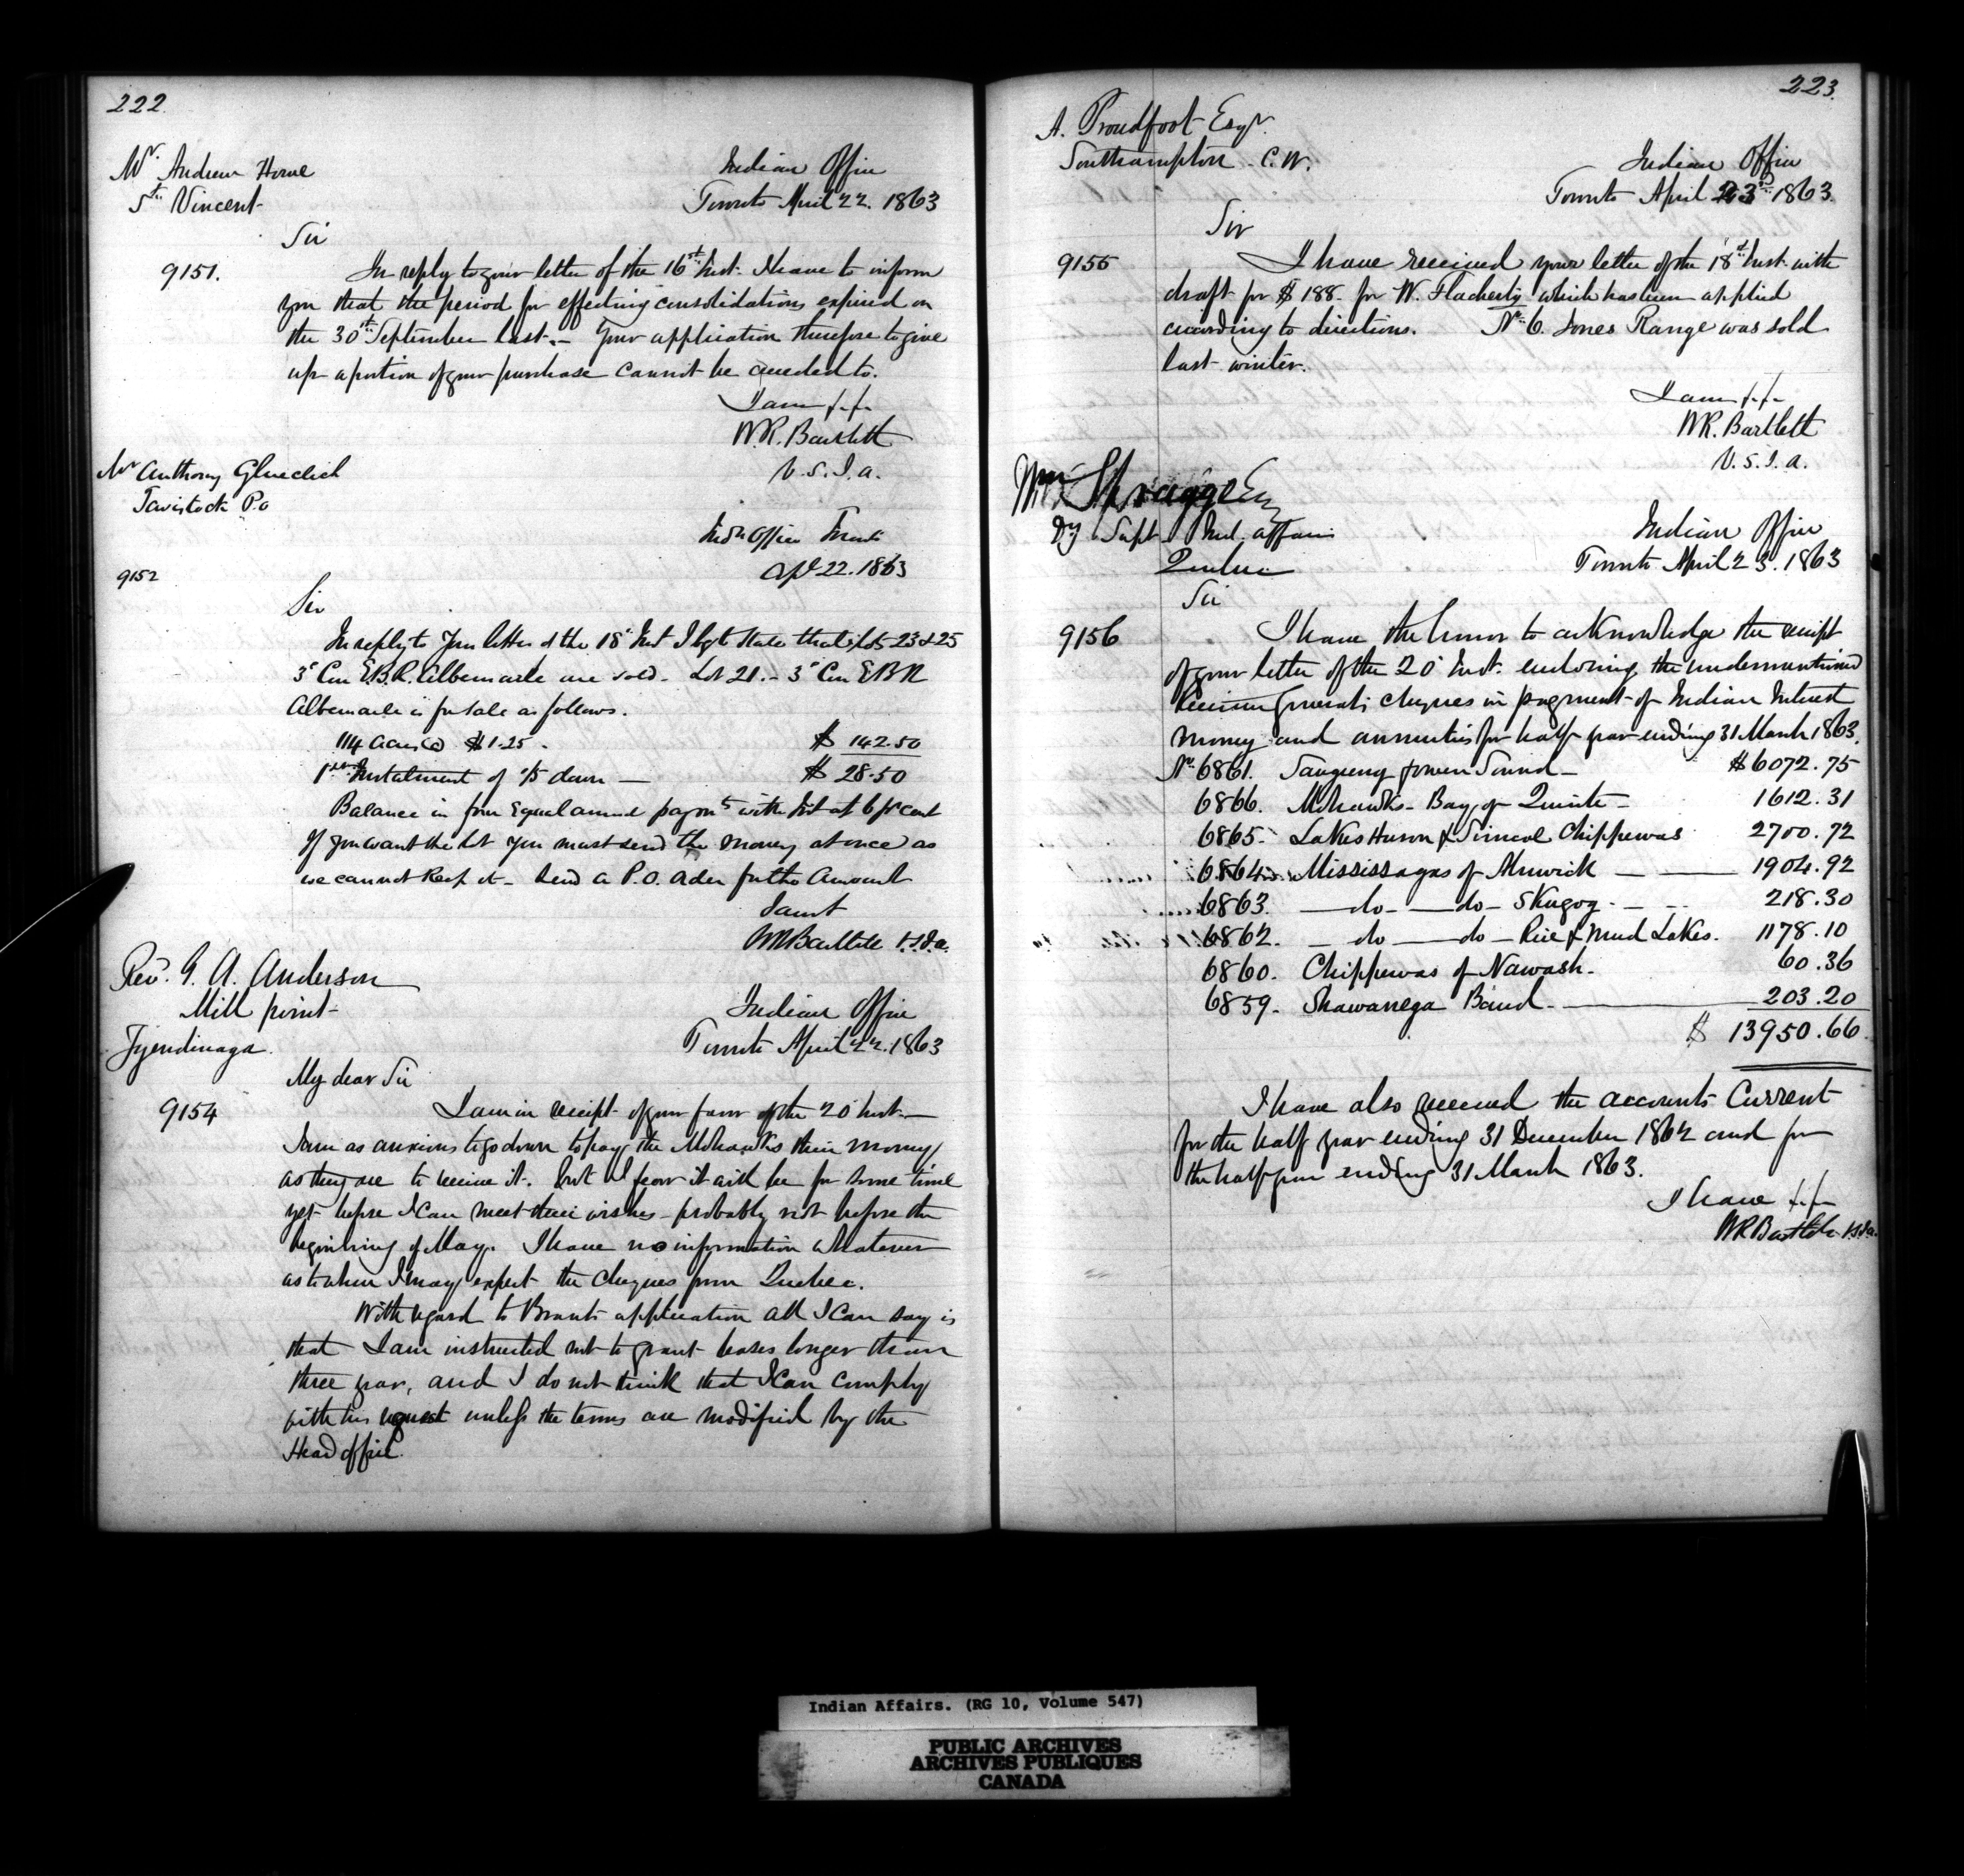 222.
Mr. Andrew Horne
St. Vincent
Indian Office
Toronto April 22. 1863
Sir
9151.
In reply to your letter of the 16th Inst. I have to inform
you that the period for effecting consolidations expired on
the 30th September last. – Your application therefore to give
up a portion of your purchase cannot be acceded to.
I am f.f.
W.R. Bartlett
V.S.I.a.
Mr Anthony
Tavistock P.o
Indn Office Toronto
Apl 22. 1863
9152
Sir
In reply to your letter of the 18th Inst I bgt state that Lots 23 & 25
3d Con E.B.R. Albemarle are sold. Lot 21. – 3d Con EBR
Albemarle is for sale as follows.
114 acres @ $1.25 – $ 142.50
1st Instalment of 1/5 down — $ 28.50
Balance in four Equal annual paymts with Int at 6 pr cent
If you want the lot you must send the money at once as
we cannot keep it – Send a P.O. order for the amount
I am f
WRBartlett V.S.I.a.
Revd. G. A. Anderson
Mill point
Tyendinaga
Indian Office
Toronto April 22. 1863
My dear Sir
9154
I am in receipt of your favor of the 20th Inst. —
I am as anxious to go down to pay the Mohawks their money
as they are to receive it. but I fear it will be for some time
yet before I can meet their wishes – probably not before the
beginning of May. I have no information whatever
as to when I may expect the cheques from Quebec.
With regard to Brant's application all I can say is
that I am instructed not to grant leases longer than
three year, and I do not think that I can comply
with his request unless the terms are modified by the
Head office.
223.
A. Proudfoot Esqr.
Southampton C.W.
Indian Office
Toronto April 23rd 1863
Sir
9155
I have received your letter of the 18th Inst. with
draft for $188. for W. Flacherty which has been applied
according to directions. No. 6. Jones Range was sold
last winter.
I am f.f.
WR. Bartlett
V.S.I.a.
Wm Spragge Esq
Dy Supt Ind. affairs
Quebec
Indian Office
Toronto April 23. 1863
Sir
9156
I have the honor to acknowledge the receipt
of your letter of the 20th Inst. enclosing the undermentioned
Receiver Generals cheques in payment of Indian Interest
money and annuities for half year ending 31 March 1863.
No. 6861. Saugeeng & Owen Sound – $6072.75
6866. Mohawks – Bay of Quinte – 1612.31
6865. Lakes Huron & Simcoe Chippewas 2700.72
6864. Mississagas of Alnwick — — 1904.92
6863. — do — do – Skugog. – – 218.30
6862. – do — do – Rice & Mud Lakes. 1178.10
6860. Chippewas of Nawash. 60.36
6859. Shawanega Band — 203.20
$ 13950.66
I have also received the accounts Current
for the half year ending 31 December 1862 and for
the half year ending 31 March 1863.
I have f.f.
WRBartlett V.S.I.a.
Indian Affairs. (RG 10, Volume 547)
PUBLIC ARCHIVES
ARCHIVES PUBLIQUES
CANADA